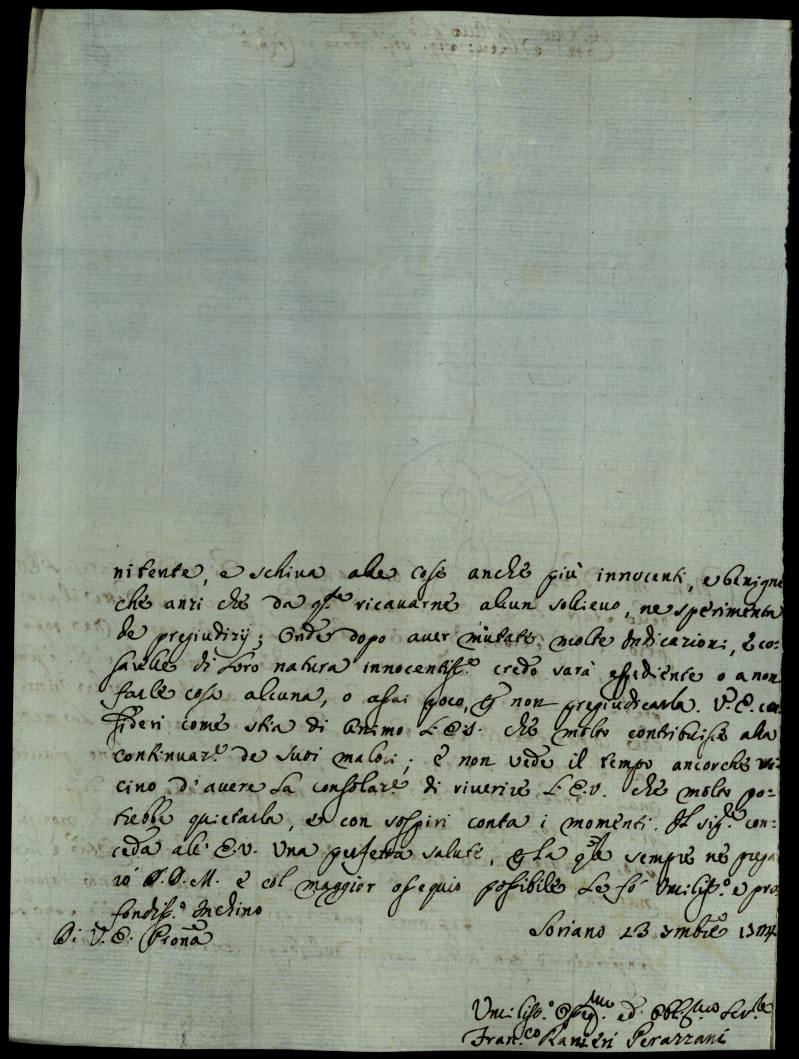 nitente, e schiva alle cose anche più innocenti, e benigne
che anzi che da q.te ricavarne alcun sollievo, ne sperimenta
de pregiudizij; Onde dopo aver mutate molte Indicazioni, e co-
sarelle di loro natura innocentiss.e credo sarà espediente o a non
farle cosa alcuna, o assai poco, p non pregiudicarla. V.E. con
sideri come stia di animo L.E.S. che molto contribuisce alla
continuaz.e de suoi malori; e non vede il tempo ancorche vi-
cino d'avere la consolaz.e di riverire L.E.V. che molto po-
trebbe quietarla, e con sospiri conta i momenti. Il Sig.e con-
ceda all'E.V. una perfetta salute, p la q.le sempre ne pregar
rò S.D.M. e col maggior ossequio possibile le fò umiliss.o e pro
fondiss.o Inchino
Di V.E. Pron̄a
Soriano 23 Xmbre
Umiliss.o Osseq.mo ed Obblig.mo Ser.re
Fran.co Ranieri Perazzani